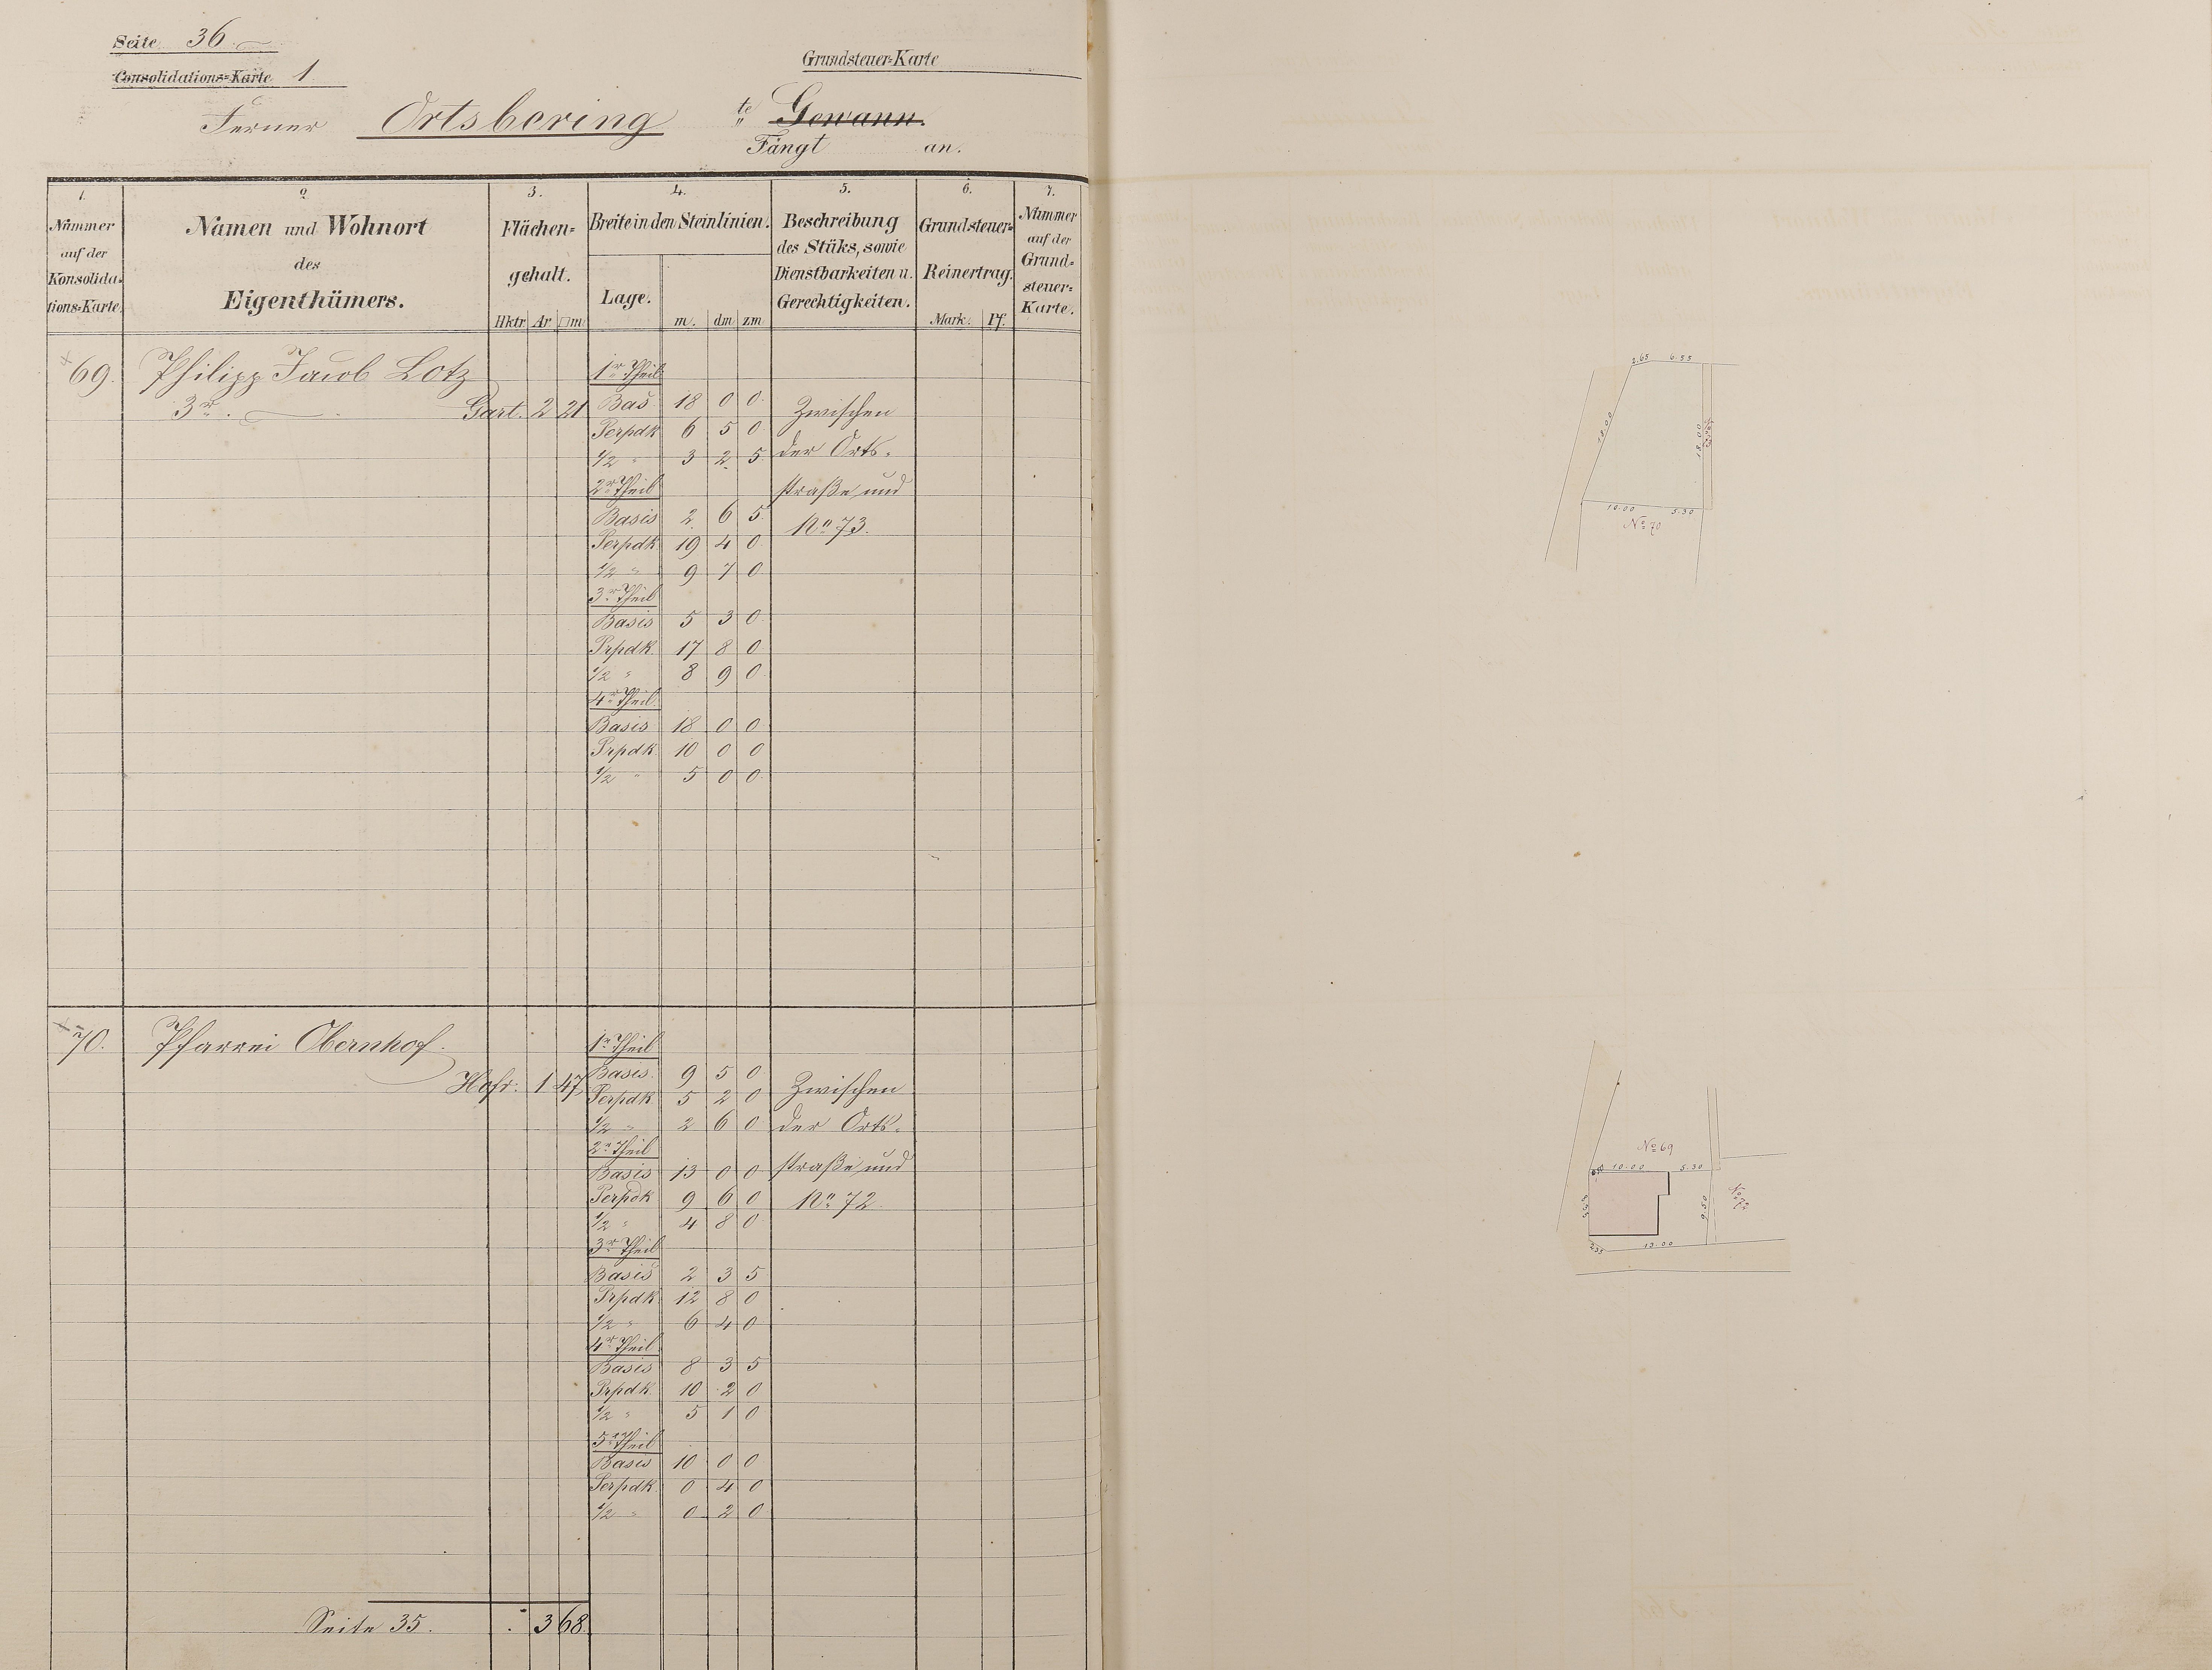 Seite 36.
Consolidations=Karte 1
Grundsteuer-Karte
Ferner Ortsbering te Gewann.
Fängt an.
1. 2 3. 4. 5. 6. 7.
Nummer auf der Konsolida=tions=Karte.
Namen und Wohnort
des
Eigenthümers.
Flächen=
gehalt.
Hktr Ar □m
Breite in den Steinlinien.
Lage.
m. dm zm
Beschreibung
des Stüks, sowie
Dienstbarkeiten u.
Gerechtigkeiten.
Grundsteuer=
Reinertrag.
Mark. Pf.
Nummer
auf der
Grund=
steuer=
Karte.
69. Philipp Jacob Lotz 1r Theil
3r. Gart. 2 21 Bas 18 0 0 Zwischen
Perpdk 6 5 0
1/2 " 3 2 5 der Orts=
2r Theil straße und
Basis 2 6 5 No 73.
Perpdk 19 4 0
1/2 " 9 7 0
3r Theil
Basis 5 3 0
Prpdk 17 8 0
1/2 " 8 9 0
4r Theil
Basis 18 0 0
Prpdk 10 0 0
1/2 " 5 0 0
70. Pfarrei Obernhof. 1r Theil
Hofr. 1 47 Basis 9 5 0 Zwischen
Perpdk 5 2 0
1/2 " 2 6 0 der Orts=
2r Theil
Basis 13 0 0 straße und
Perpdk 9 6 0 No 72
1/2 " 4 8 0
3r Theil
Basis 2 3 5
Prpdk 12 8 0
1/2 " 6 4 0
4r Theil
Basis 8 3 5
Prpdk 10 2 0
1/2 " 5 1 0
5r Theil
Basis 10 0 0
Perpdk 0 4 0
1/2 " 0 2 0
Seite 35. 3 68
2.65 6.55
18.0
18.00
10.00 5.30
No 70
No 69
10.00 5.30
9.50
No 72
2.35 13.00